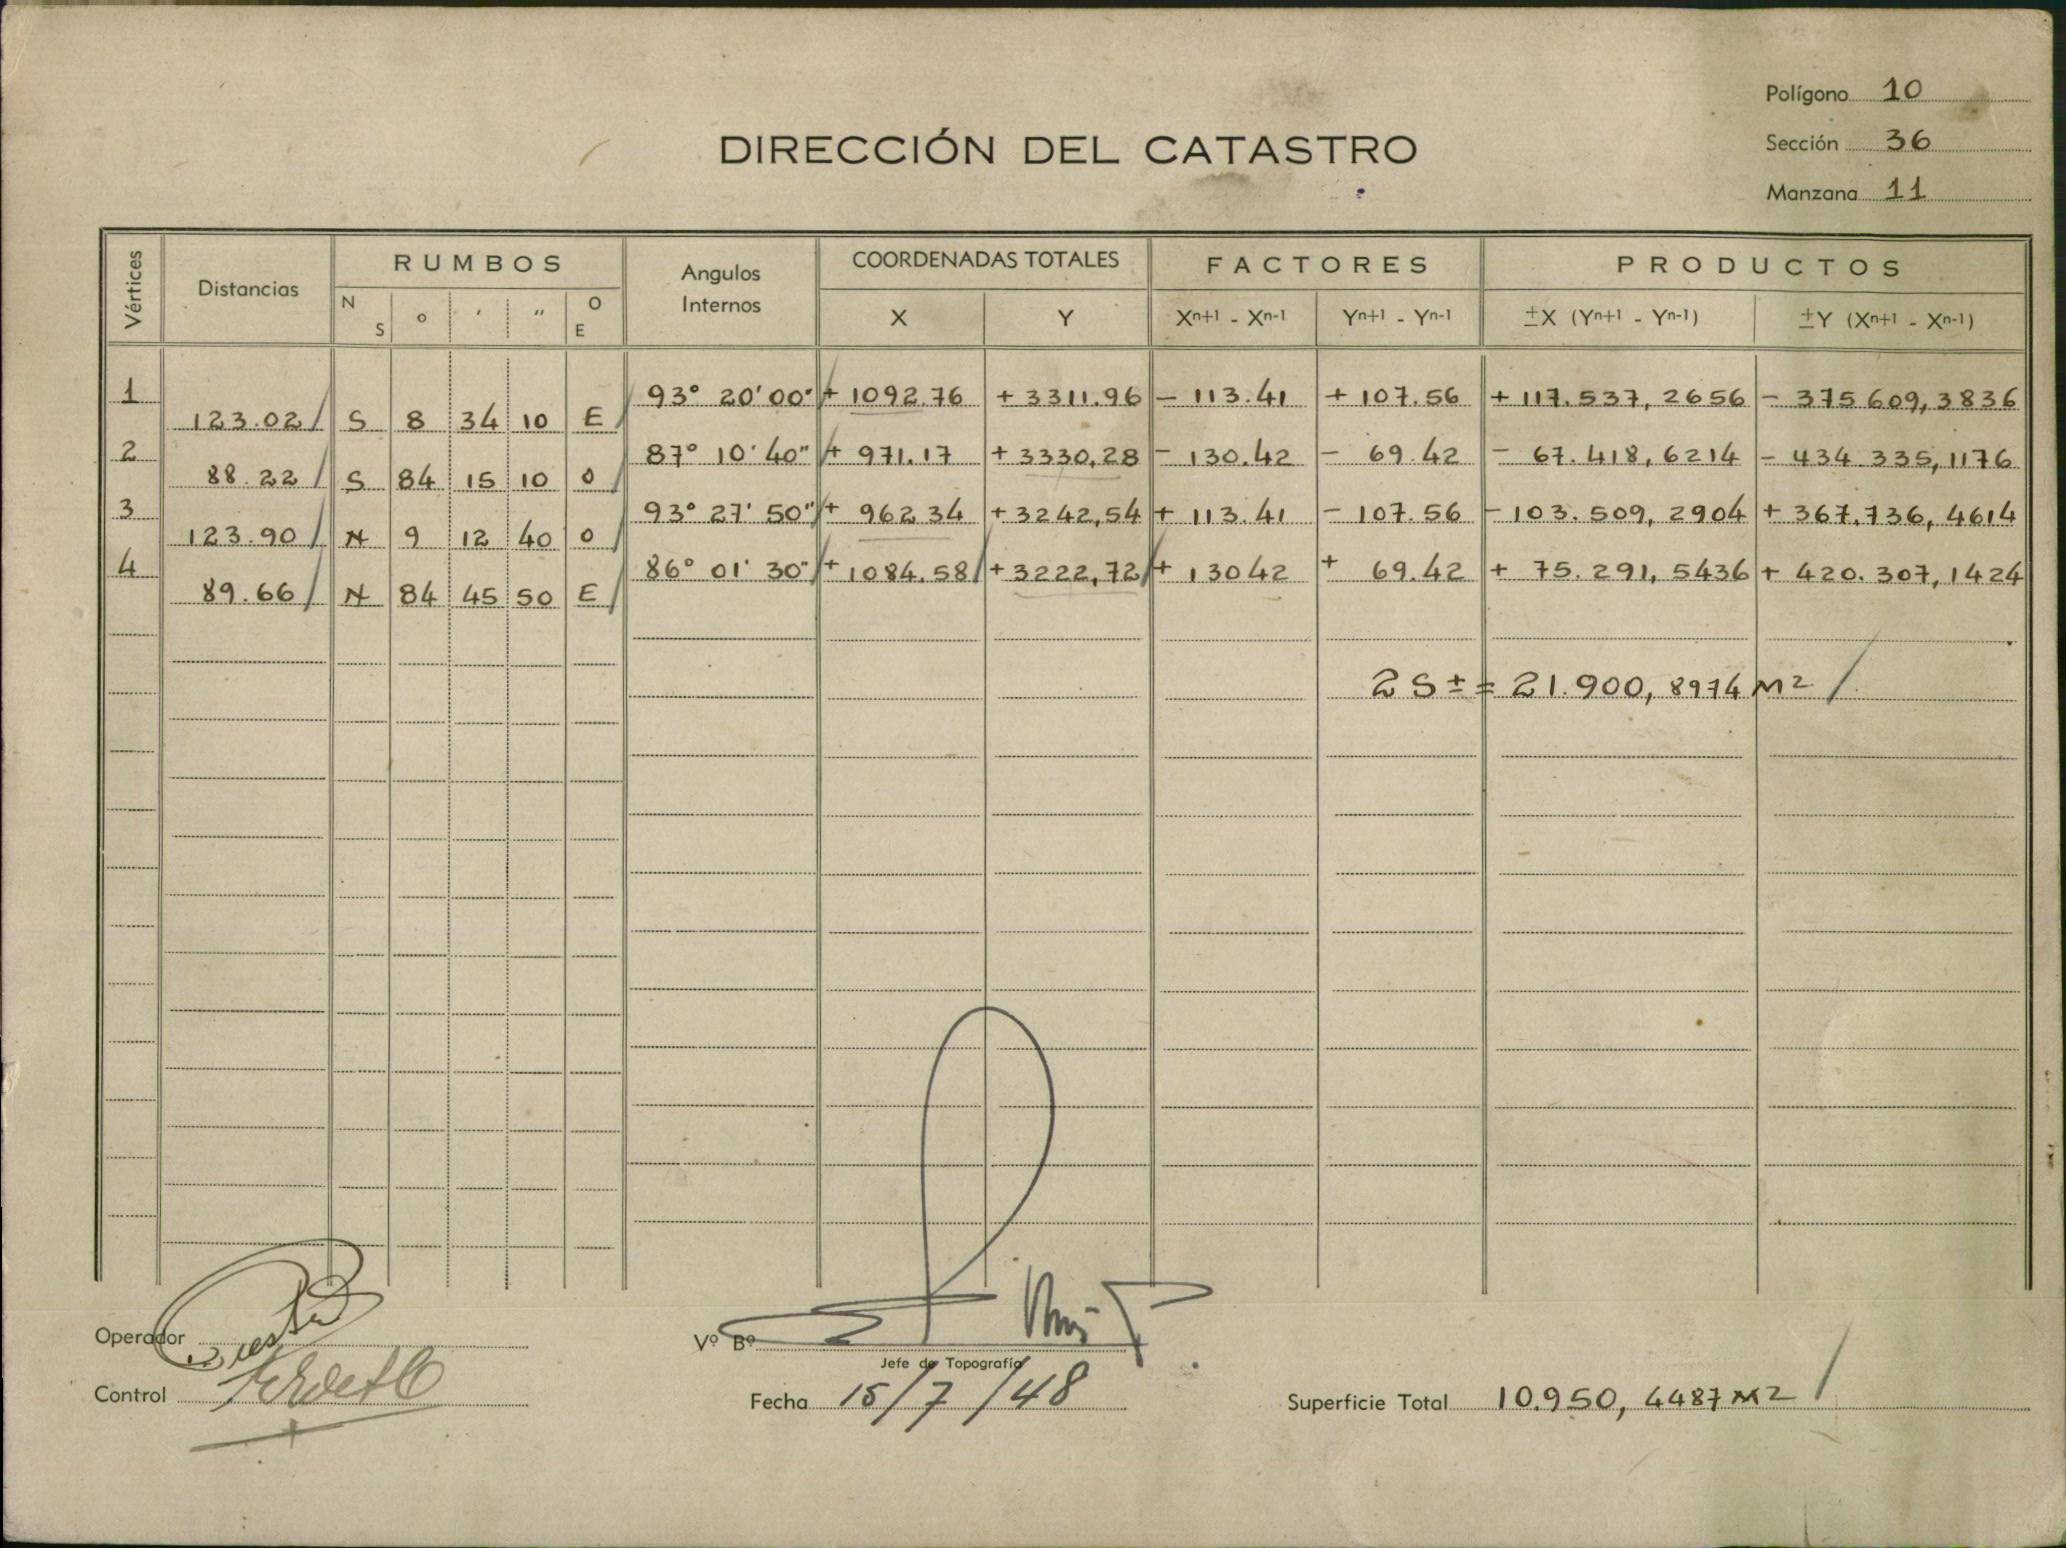 Polígono 10
Sección 36
Manzana 11
DIRECCIÓN DEL CATASTRO
Vértices Distancias RUMBOS Angulos Internos COORDENADAS TOTALES FACTORES PRODUCTOS
N S º ' " O E X Y Xn+1 - Xn-1 Yn+1 - Yn-1 ±X (Yn+1 - Yn-1) ±Y (Xn+1 - Xn-1)
1 93° 20' 00" + 1092.76 + 3311.96 - 113.41 + 107.56 + 117.537,2656 - 375609,3836
123.02 S 8 34 10 E
2 87° 10' 40" + 971.17 + 3330,28 - 130.42 - 69.42 - 67.418,6214 - 434.335,1176
88.22 S 84 15 10 O
3 93° 27' 50" + 962.34 + 3242,54 + 113.41 - 107.56 - 103.509,2904 + 367.736,4614
123.90 N 9 12 40 O
4 86° 01' 30" + 1084.58 + 3222,72 + 13042 + 69.42 + 75.291,5436 + 420.307,1424
89.66 N 84 45 50 E
2 S ± = 21.900,8974 M2
Operador
Vº Bº
Jefe de Topografía
Control
Fecha 15/7/48
Superficie Total 10.950,4487 M2